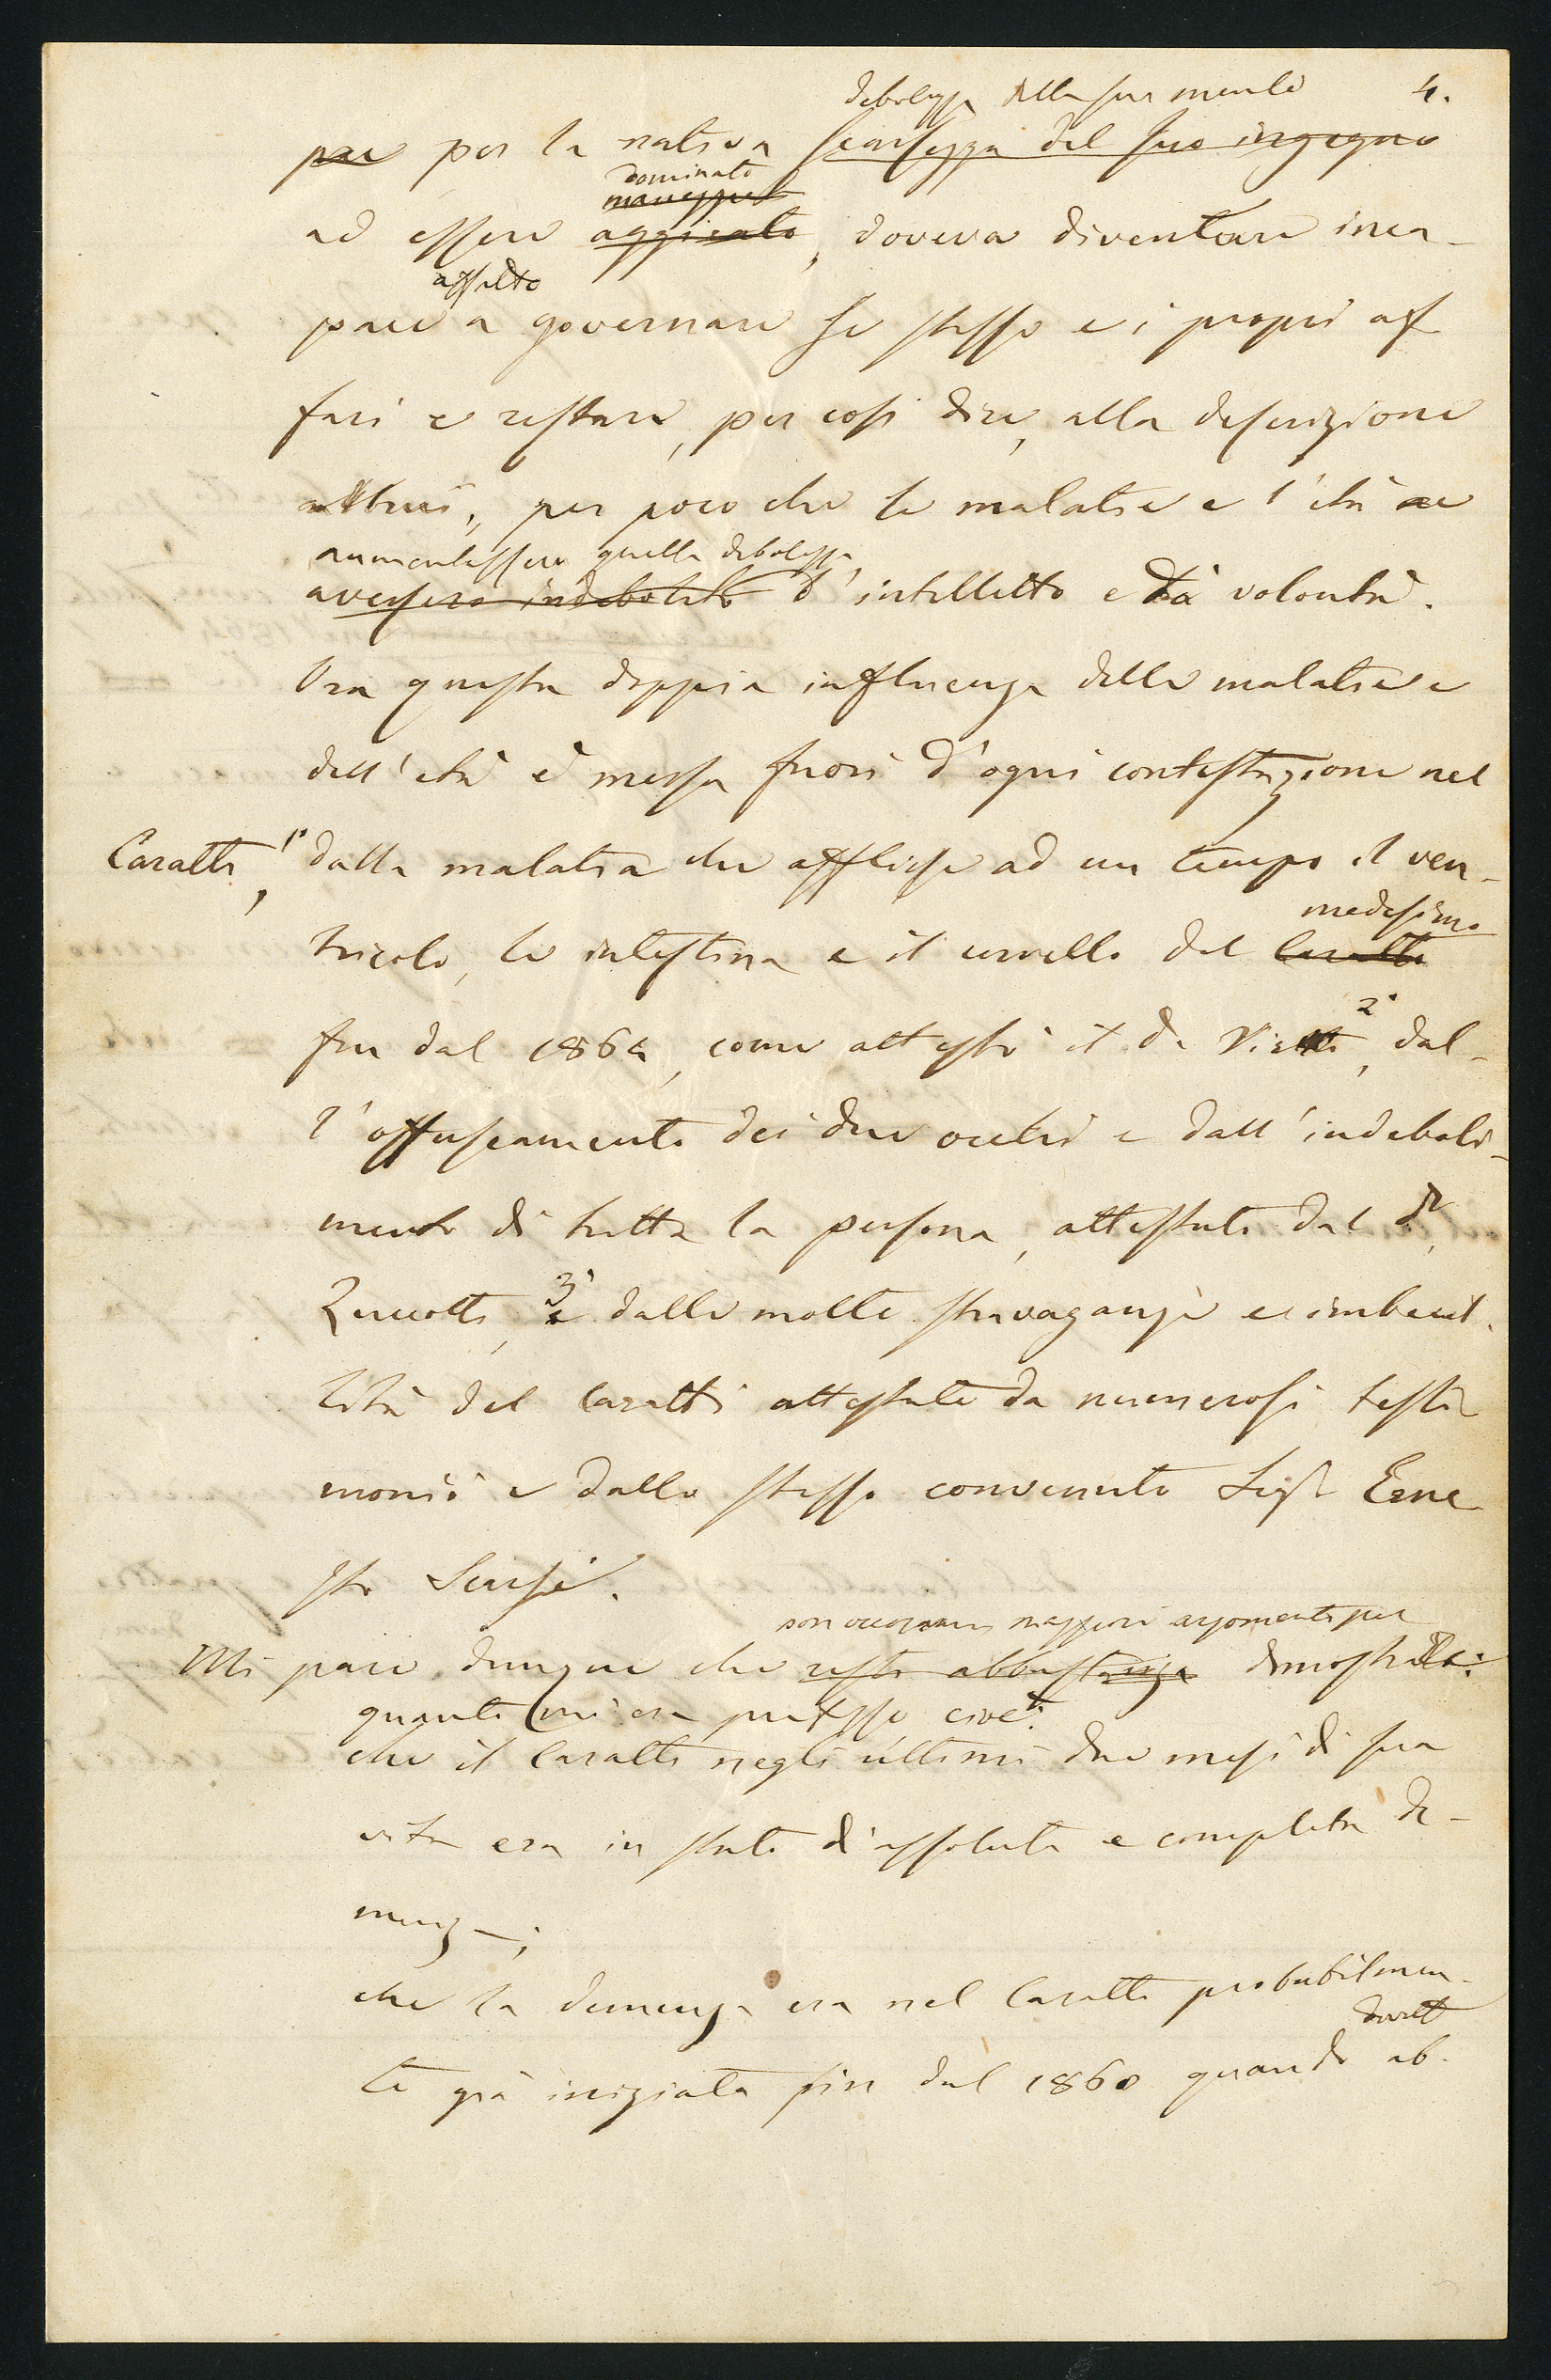 debolezza della sua mente 4.
per per la nativa scarsezza del suo ingegno
dominato
ad essere aggirato, doveva diventare inca-
affatto
pace a governare se stesso e i propri af
fari e restare, per così dire, alla descrizione
altrui, per poco che le malatie e l'età ne
aumentassero quella debolezza
avessero indebolito d'intelletto e di volontà.
Ora questa doppia influenza delle malatie e
dell'età è messa fuori d'ogni contestazione nel
Caratti, 1° dalla malatia che afflisse ad un tempo il ven-
medesimo
tricolo, le intestina e il cervello del Caratti
fin dal 1864, come attestò il Dr 2° dal-
l'offuscamento dei due occhi e dall'indeboli-
mento di tutta la persona, attestato dal Dr
Zuccotti, 3° e dalle molte stravaganze e imbecil-
lità del Caratti attestate da numerosi testi
monii e dallo stesso convenuto Sigr Erne
sto
non occorrano maggiori argomenti per
Mi pare dunque che resti abbastanza dimostrare:
quanto mi era prefisso cioè:
che il Caratti negli ultimi due mesi di sua
vita era in stato d'assoluta e completa de-
menza;
che la demenza era nel Caratti probabilmen-
te già iniziata fin dal 1860 quando ab-